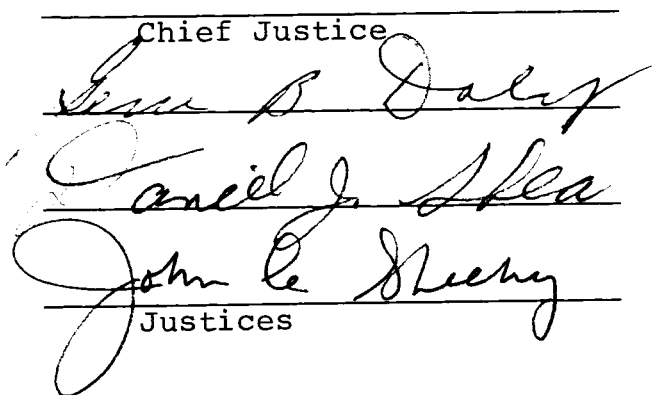 Chief Justice
Gene B Daly
Daniel J. Shea
John C. Sheehy
Justices